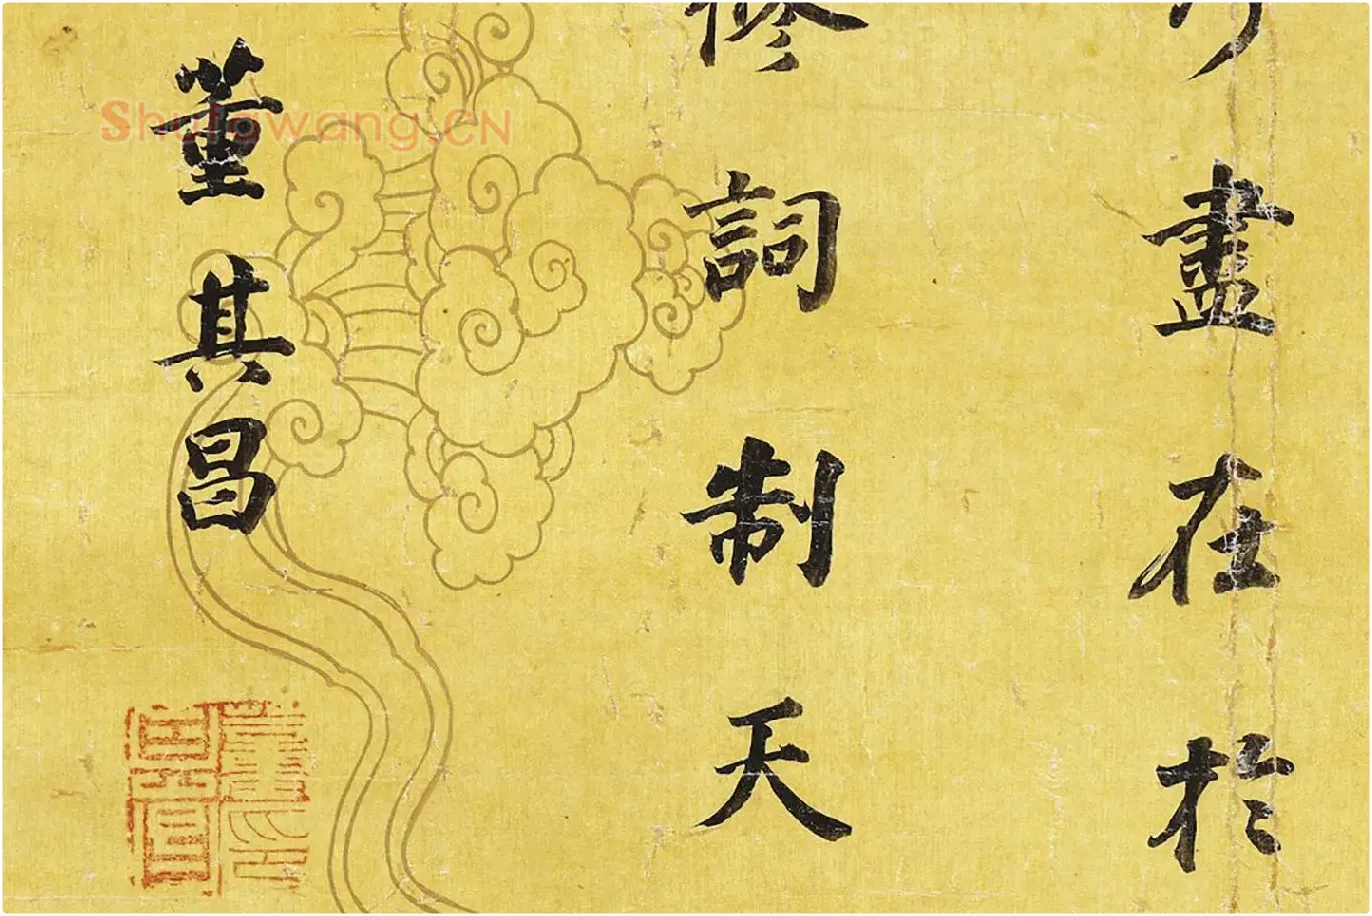 盡在於
修詞制天
董其昌
Shufawang.CN